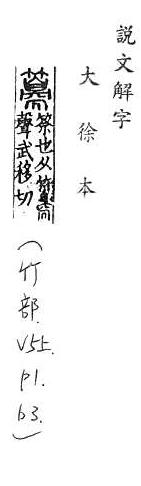 說文解字
大徐本
筡也从竹
聲武移切
(竹部.V5上.P1.b3.)